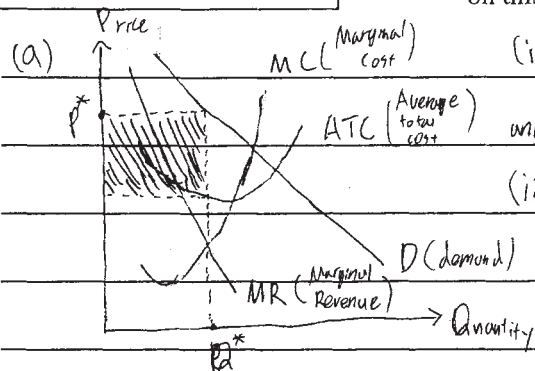 on this
Price
(a)
MC (Marginal Cost)
(i
P*
ATC (Average total cost)
(i
D (demand)
MR (Marginal Revenue)
Quantity
Q*